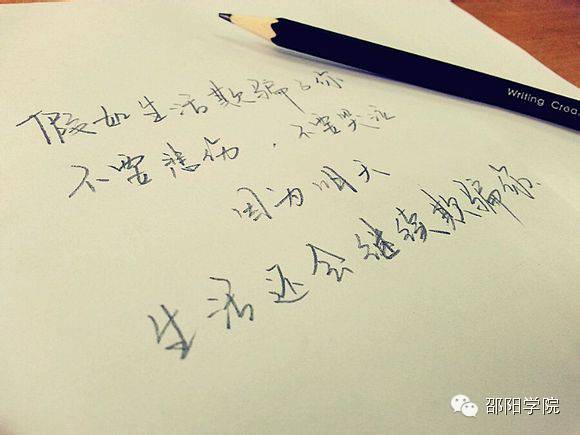 假如生活欺骗了你
不要悲伤，不要哭泣
因为明天
生活还会继续欺骗你
Writing Crea
邵阳学院